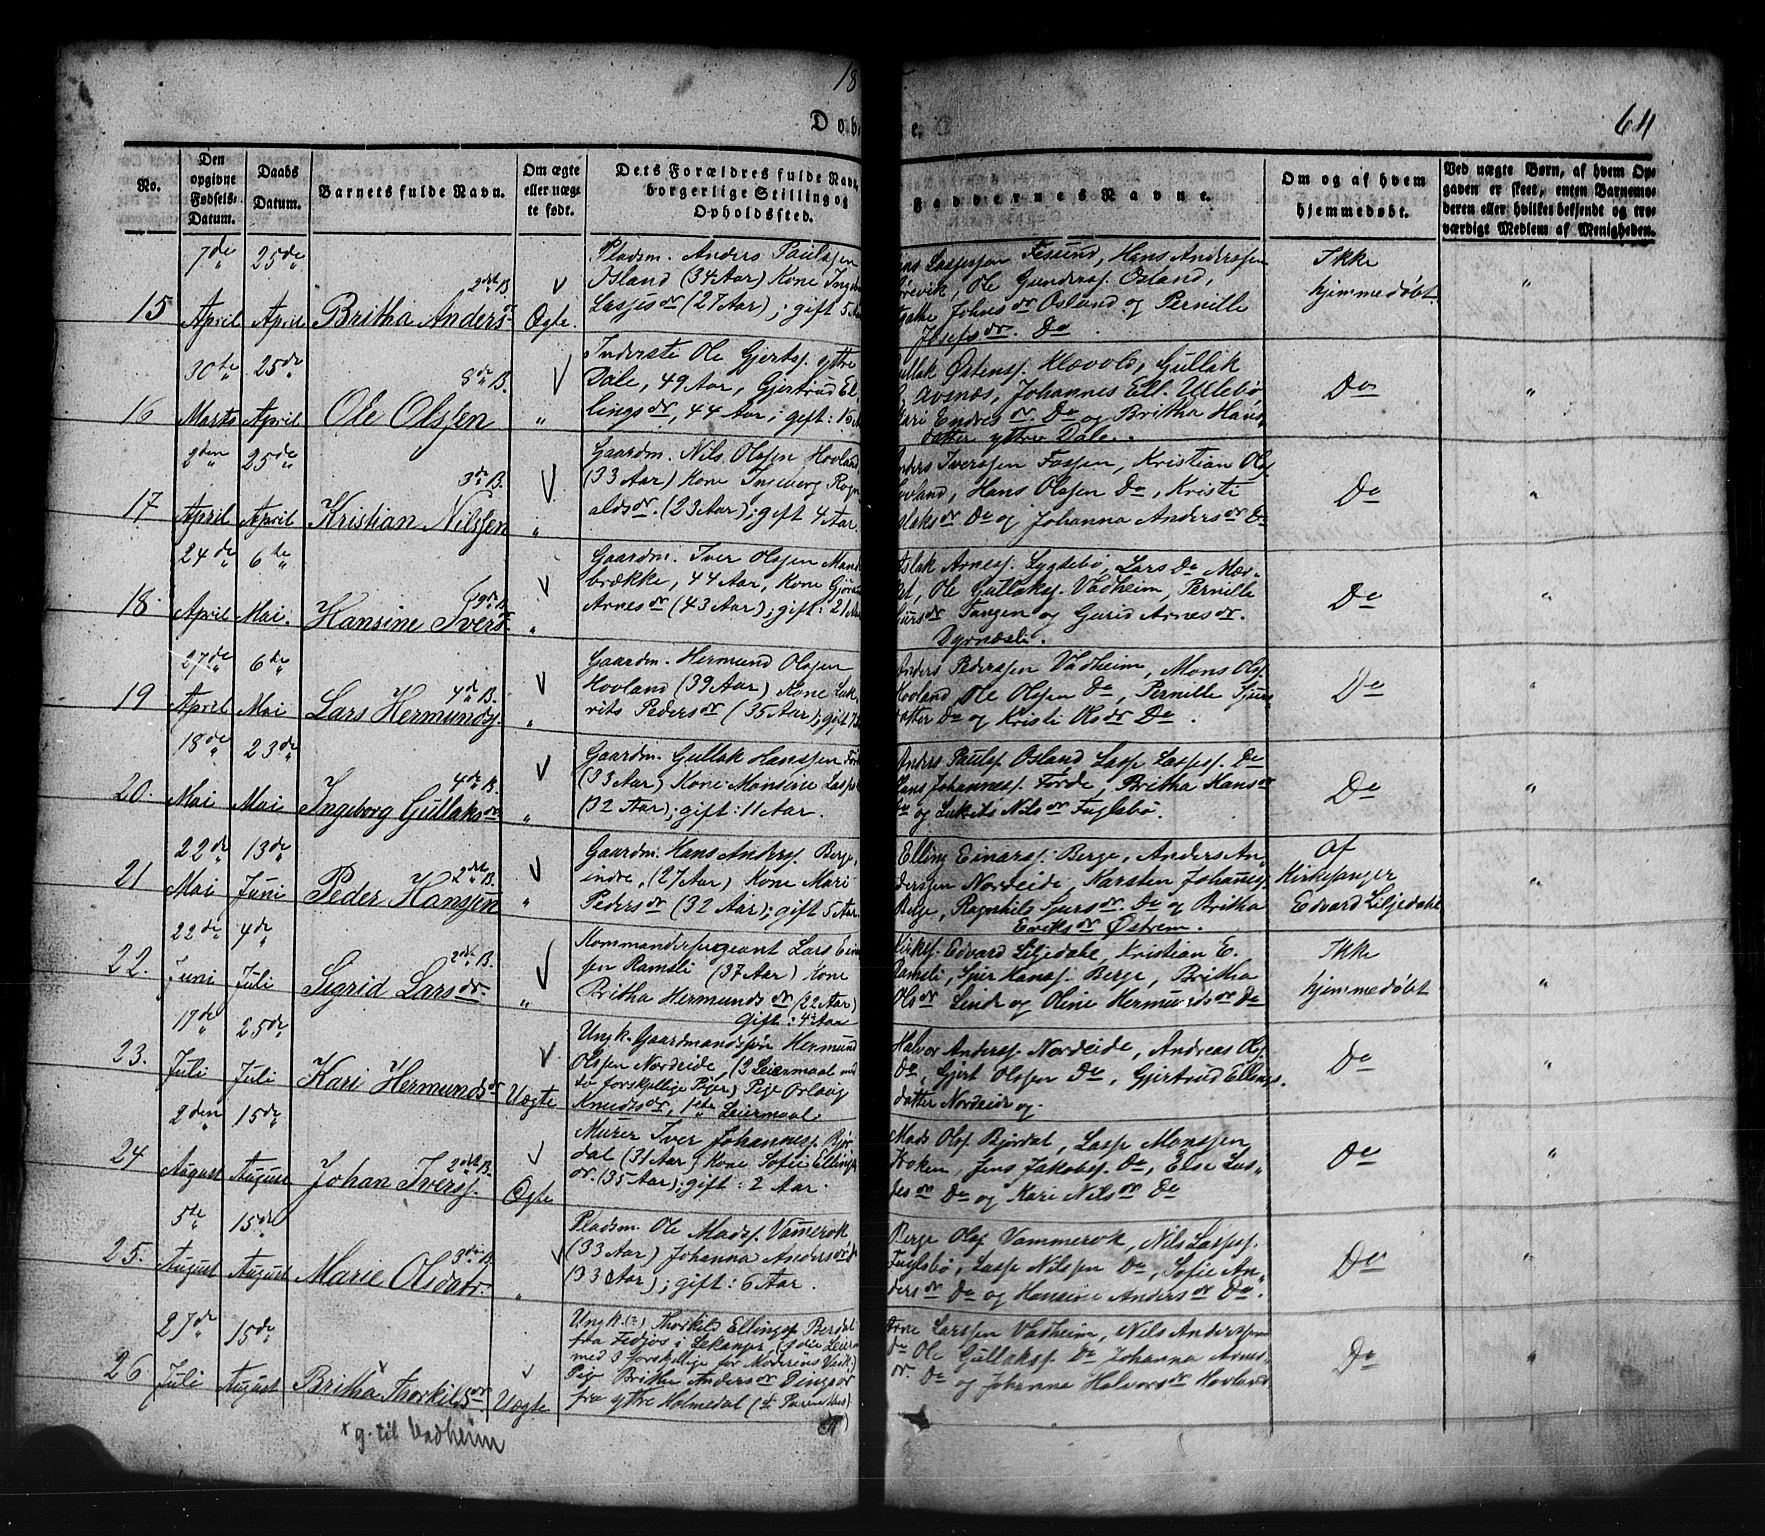 18
Dob
e.
64
No.
Den opgivne Fødsels-Datum.
Daabs Datum.
Barnets fulde Navn.
Om ægte eller uægte født.
Dets Forældres fulde Navn, borgerlige Stilling og Opholdssted.
Faddernes Navne.
Om og af hvem hjemmedøbt.
Ved uægte Børn, af hvem Opgaven er skeet, enten Barnemoderen eller hvilket bekjendt og troværdigt Medlem af Menigheden.
15
7de April
25de April
2det B.
Britha Anders
Ægte.
Pladsm. Anders Paulssen
Osland (34 Aar) Kone
(27 Aar); gift 5
Lassessen Fesund, Hans Anderssen
Ole Gunderss. Osland,
Johnsdr Osland og Pernille
Josefsdr. Do
Ikke
hjemmedøbt.
"
16
30te Marts
25de April
8de B.
Ole Olssen
"
Inderste Ole Gjertss. yttre
Dale, 49 Aar, Gjertrud El
lingsdr, 44 Aar; gift: 15
Østenss. Hævold, Gullak
Avenæs, Johannes Ell. Ullebø
Kari Endresdr. Do og Britha Hans
datter yttre Dale.
Do
"
17
2den April
25de April
3de B.
Kristian Nilssen
"
Gaardm. Nils Olssen Hovland
(33 Aar) Kone Ingeborg Rogn
aldsdr. (23 Aar); gift 4 Aar.
Anders Iverssen Fossen, Kristian Ols.
Hovland, Hans Olssen Do, Kristi
Do og Johanna Andersdr Do
Do
"
18.
24de April
6te Mai.
19de B.
Hansine Ivers
"
Gaardm. Iver Olssen
brække, 44 Aar, Kone
Arnesdr (43 Aar); gift: 21
Aslak Arness. Lygtebø, Lars Do
Ole Gullakss. Vadheim, Pernille
Tangen og Gurid Arnesdr.
Dyrnæsli.
Do
"
19
27de April
6te Mai
4de B.
Lars Hermunds.
"
Gaardm. Hermund Olssen
Hovland (39 Aar) Kone Luk
rits Pedersdr (35 Aar); gift
Anders Pederssen Vadheim, Mons Ols.
Hovland, Ole Olssen Do, Pernille Sjurs
datter Do og Kristi Olsdr Do
Do
"
20.
18de Mai
23de Mai
4de B.
Ingeborg Gullaksdr
"
Gaardm. Gullak Hanssen
(33 Aar) Kone Monsine Lasse
(32 Aar); gift: 11 Aar.
Anders Pauls. Osland, Lasse Lasses. Do
Hans Johanness. Førde, Britha Hansdr
Do og Lukrits Nilsdr Fuglebø.
Do
"
21
22de Mai
13de Juni
2det B.
Peder Hanssen
"
Gaardm. Hans Anderss. Berge,
indre, (27 Aar) Kone Mari
Pedersdr (32 Aar); gift 5 Aar
Elling Einarss. Berge, Anders An
derssen Nordeide, Karsten Johannes
Berge, Ragnhild Sjursdr. Do og Britha
Eriksdr Østrem.
Af
Kirkesanger
Edvard Liljedahl
"
22.
22de Juni
4de Juli
2det B.
Sigrid Larsdr.
"
Kommandersergeant Lars Ein
sen Ramsli (37 Aar) Kone
Britha Hermundsdr (22 Aar)
gift: 4 Aar
Kirkes. Edvard Liljedahl, Kristian E.
Ramsli, Sjur Hanss. Berge, Britha
Olsdr Linde og Oline Hermundsdr Do
Ikke
hjemmedøbt
"
23.
17de Juli
25de Juli
Kari Hermundsdr
Uægte
Ungk. Gaardmandssøn Hermund
Olssen Nordeide, (2 Leiermaal med
to forskjellige Piger) Pige Orlaug
Knudsdr, 1ste Leiermaal.
Halvor Anderss. Nordeide, Andreas Ols.
Do, Gjert Olssen Do, Gjertrud Ellings
datter Nordeide og
Do
"
24
2den August
15de August
2det B.
Johan Iverss.
Ægte
Murer Iver Johanness. Bjør
dal (31 Aar) Kone Sofie Ellings
dr. (35 Aar); gift: 2 Aar.
Mads Ols. Bjørdal, Lasse Monssen
Kroken, Jens Jakobss. Do, Else Las
sesdr Do og Kari Nilsdr Do
Do
"
25.
5te August
15de August
3de B.
Marie Olsdatr.
"
Pladsm. Ole Madss. Vamerok
(33 Aar) Johanna Andersdr
(33 Aar); gift: 6 Aar.
Berge Ols. Vammerok, Nils Lasses.
Fuglebø, Lasse Nilssen Do, Sofie An
dersdr Do og Hansine Andersdr Do.
Do
"
26
27de Juli
15de August
Britha Thorkildsdr
x g. til Vadheim
Uægte
Ungk. Thorkild Ellings. Berdal
fra Fedjos i Lekanger, (3die Leierm.
med 3 forskjellige for Moderens Vedk.)
Pige Britha Andersdr Dingsør
fra yttre Holmedal
Arne Larssen Vadheim, Nils Anderssen
Do Ole Gullakss. Do Johanna Arnes
dr. Do og Johanna Halvorsdr Hovland
Do
"